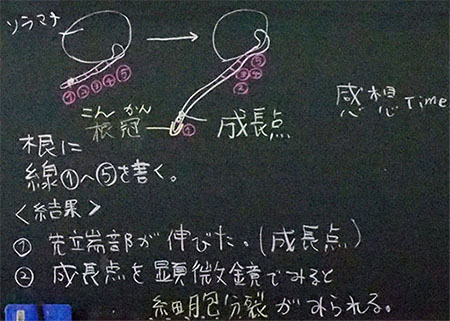 ソラマチ
①②③④⑤
⑤
③④
②
①
こんかん
根冠
成長点
感想Time
根に
線①〜⑤を書く。
<結果>
① 先端部が伸びた。(成長点)
② 成長点を顕微鏡でみると
細胞分裂がみられる。